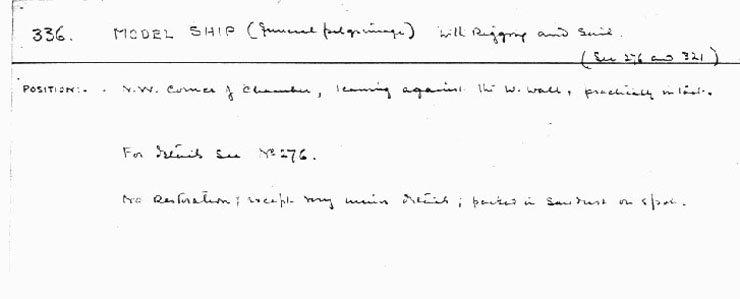 336. MODEL SHIP (funeral pilgrimage) with Rigging and Sail.
(See 276 and 321)
POSITION:. . N.W. Corner of Chamber, leaning against the W. wall, practically intact.
For details see Nº 276.
No Restoration; except very minor details; packed in sawdust on spot.